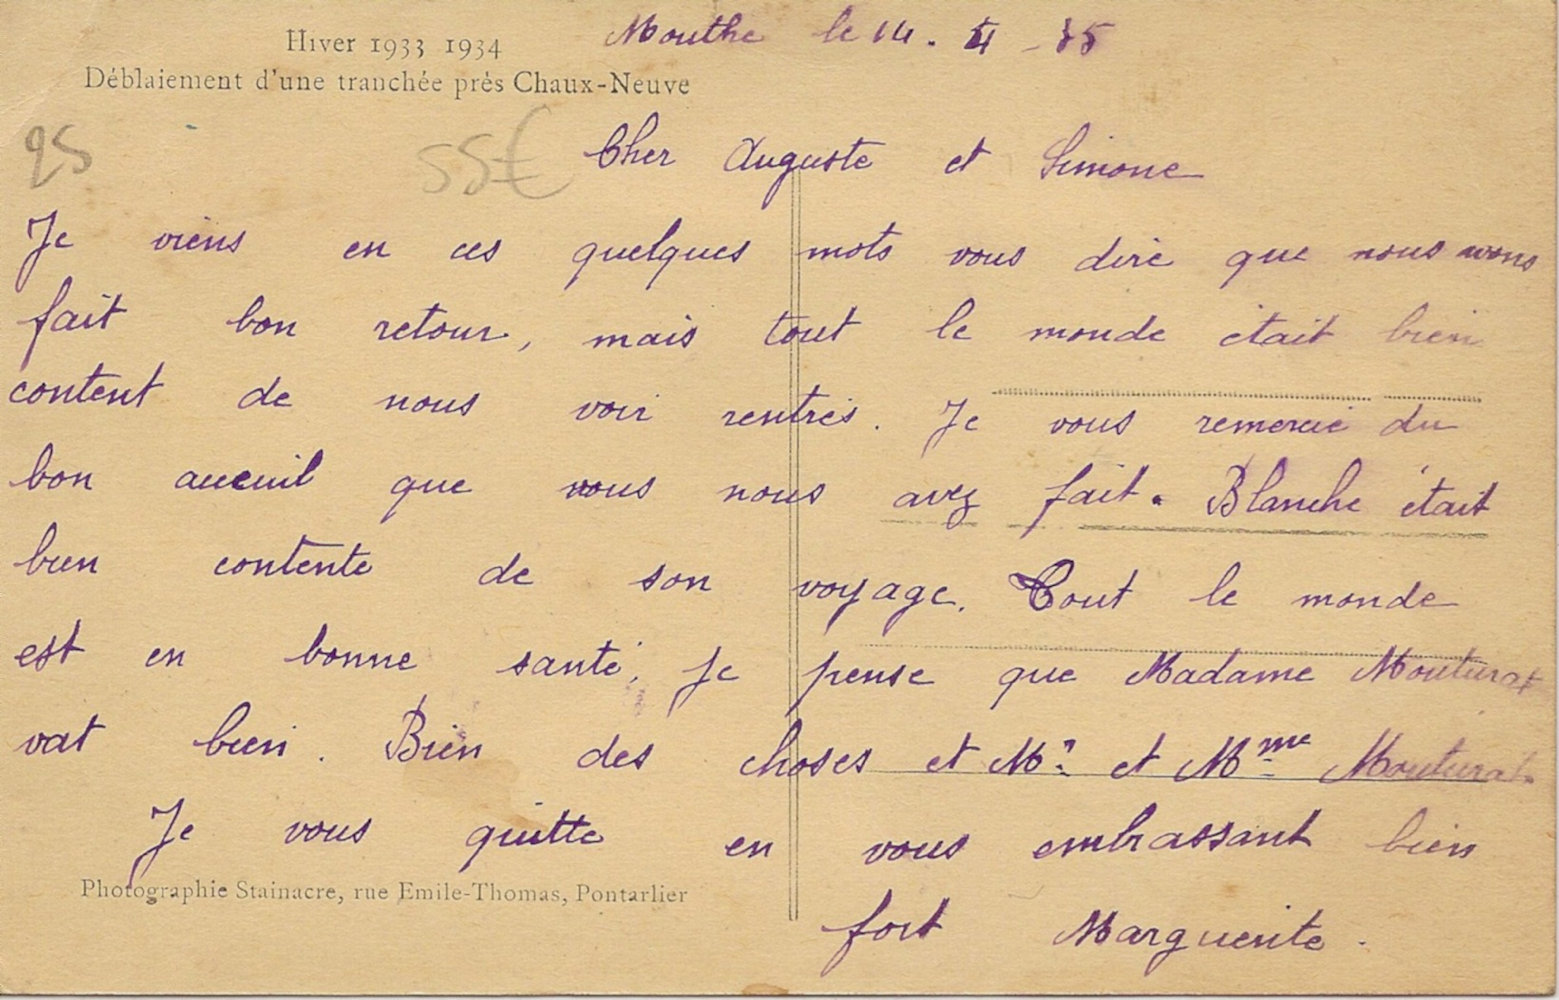 Hiver 1933 1934
Déblaiement d'une tranchée près Chaux-Neuve
Mouthe le 14. 4 - 35
95
55€
Cher Auguste et Simone
Je viens en ces quelques mots vous dire que nous avons
fait bon retour, mais tout le monde était bien
content de nous voir rentrés. Je vous remercie du
bon aceuil que vous nous avez fait. Blanche était
bien contente de son voyage. Tout le monde
est en bonne santé, je pense que Madame Mouturat
vat bien. Bien des choses et Mr. et Mme Mouturat.
Je vous quitte en vous embrassant bien
fort Marguerite.
Photographie Stainacre, rue Emile-Thomas, Pontarlier